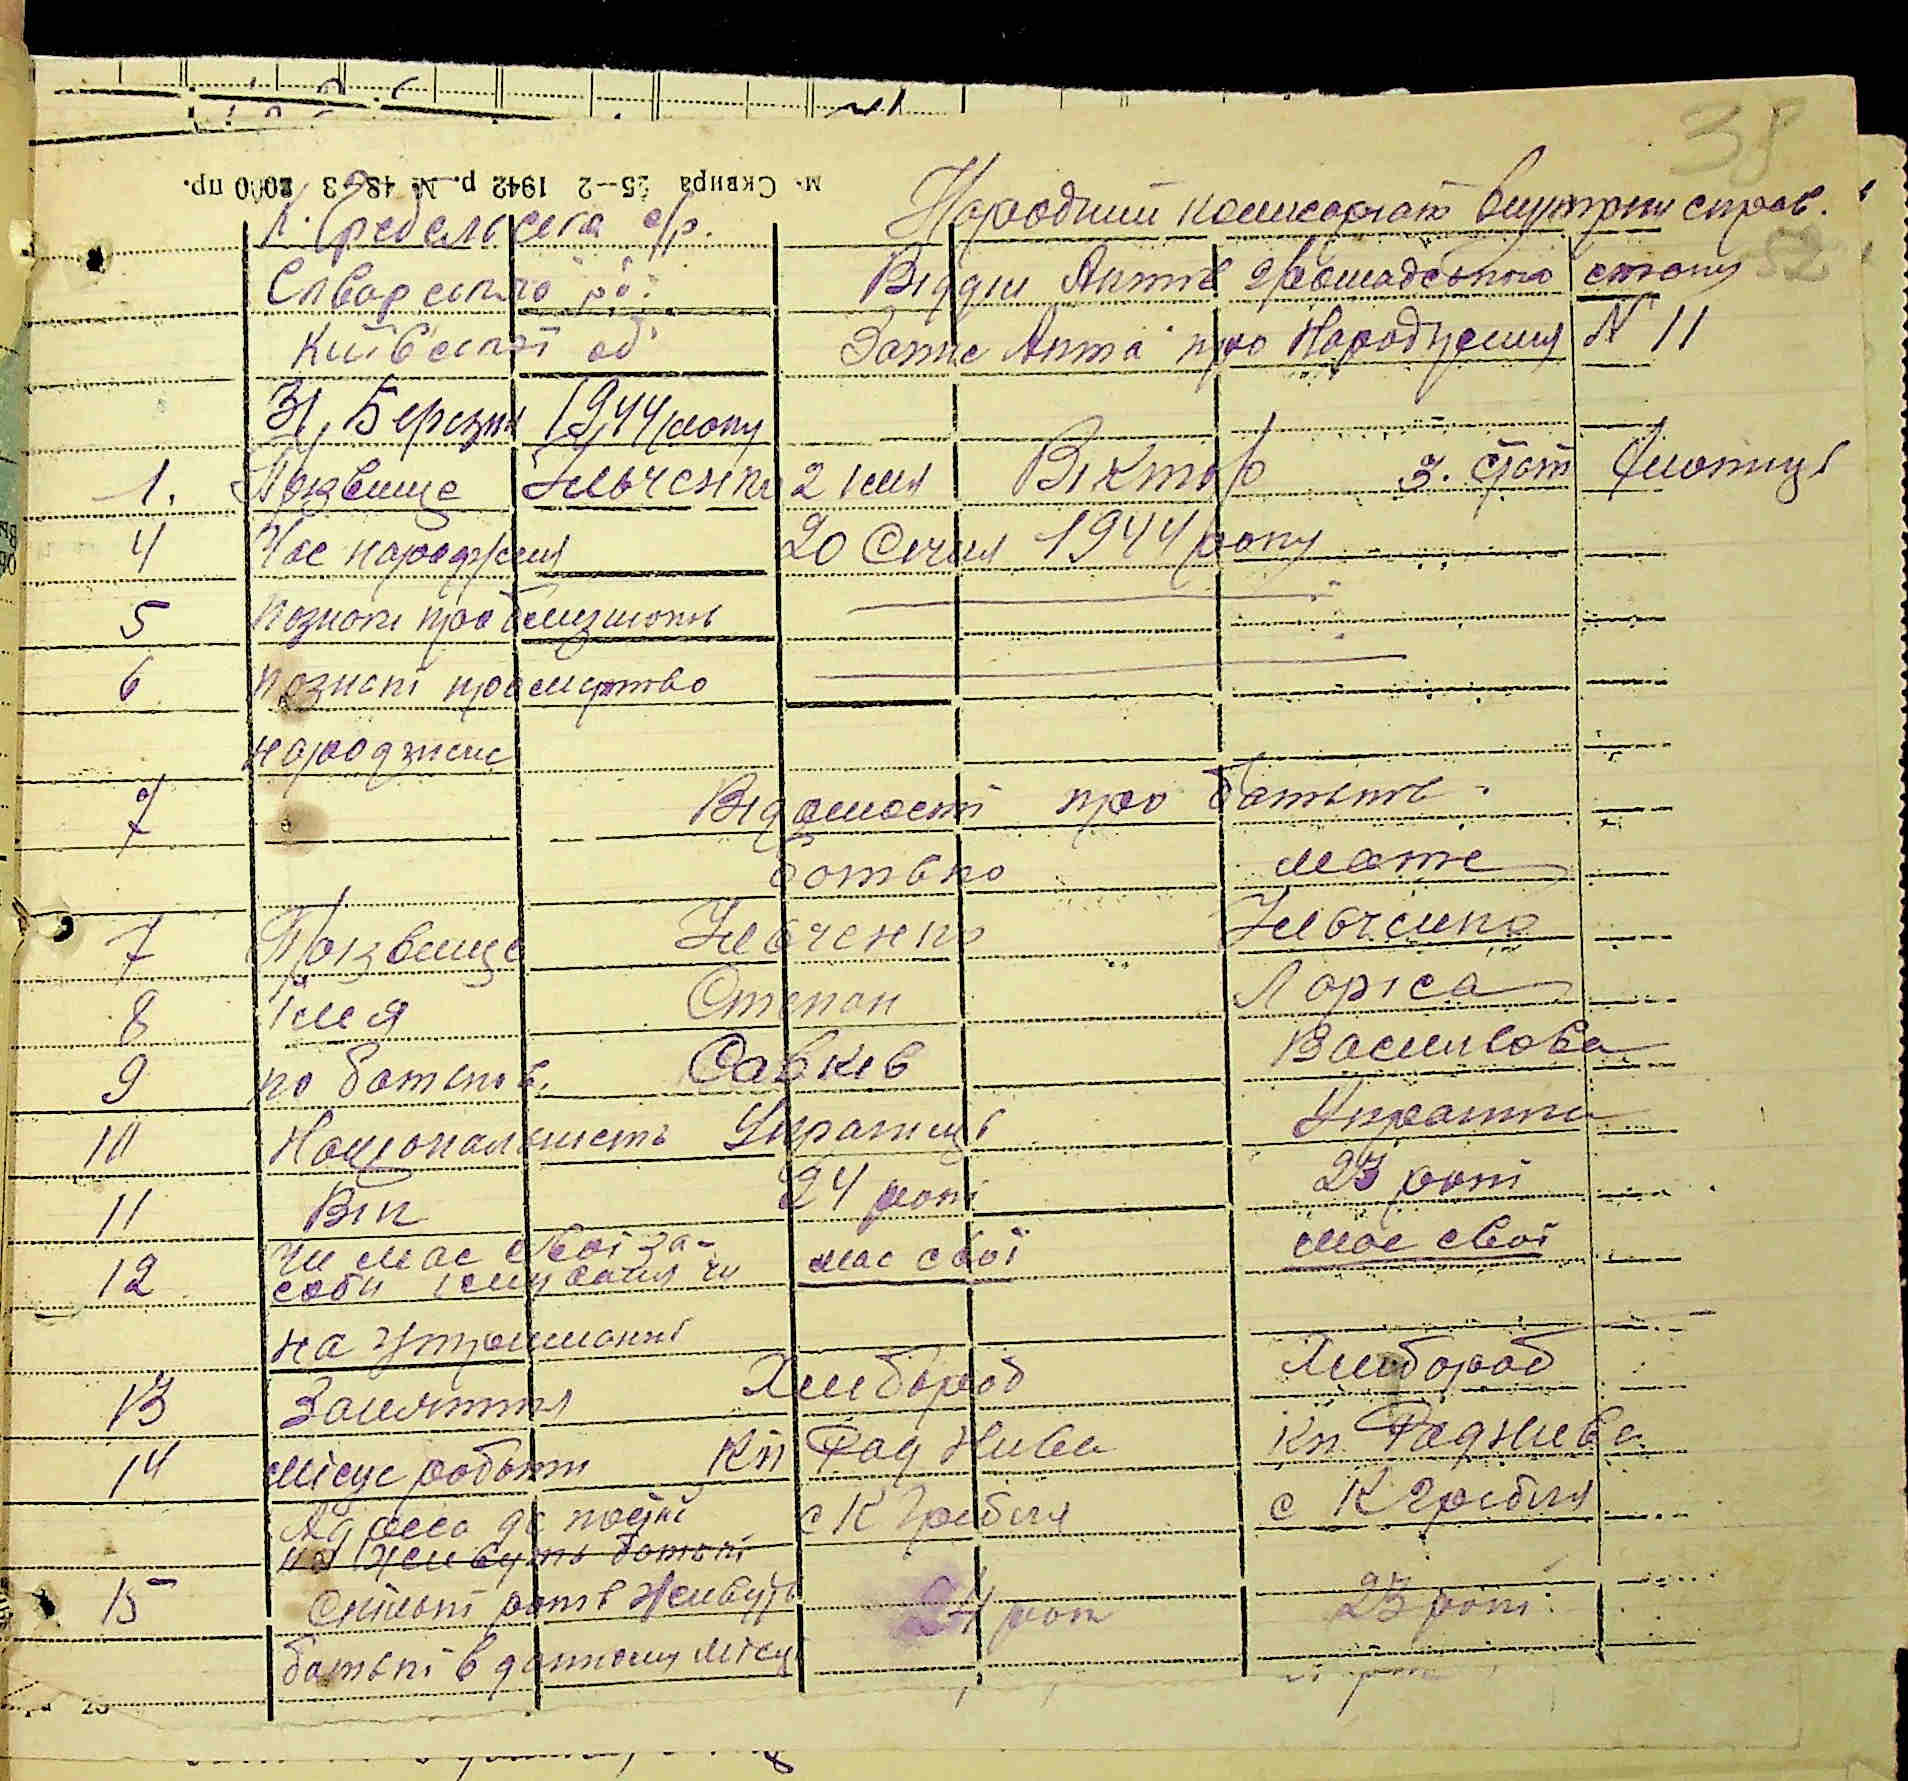 38
м. Сквира 25—2 1942 р. № 483 2000 пр.
К. Гребельська с/р. Народний комісаріат внутрішн справ.
Сквирського ро. Відділ Актів Громадського стану 52
Київської об. Запис Акта про Народження N 11
31, Березня 1944 року
1. Прізвище Ільченко 2 імя Віктор 3. стат Хлопчик
4 Час народження 20 Січня 1944 року
5 познак про близнюків
6 познакі про мертво
народжене
7 Відомості про батьків.
батько мате
7 Прізвище Ільченко Ільченко
8 імя Степан Лариса
9 по батькові. Савків Василівова
10 Національність Українець Українка
11 Вік 24 рокі 23 рокі
12 Чи має свої за-
соби існування чи має свої має свої
на утриманні
13 Заняття Хлібороб Хлібороб
14 місце роботи Кп Рад Нива Кп Рад Нива
Адреса де пості с К Гребля с К Гребля
но живуть батькі
15 скількі років живуть 24 рок 23 рокі
батькі в данному місці